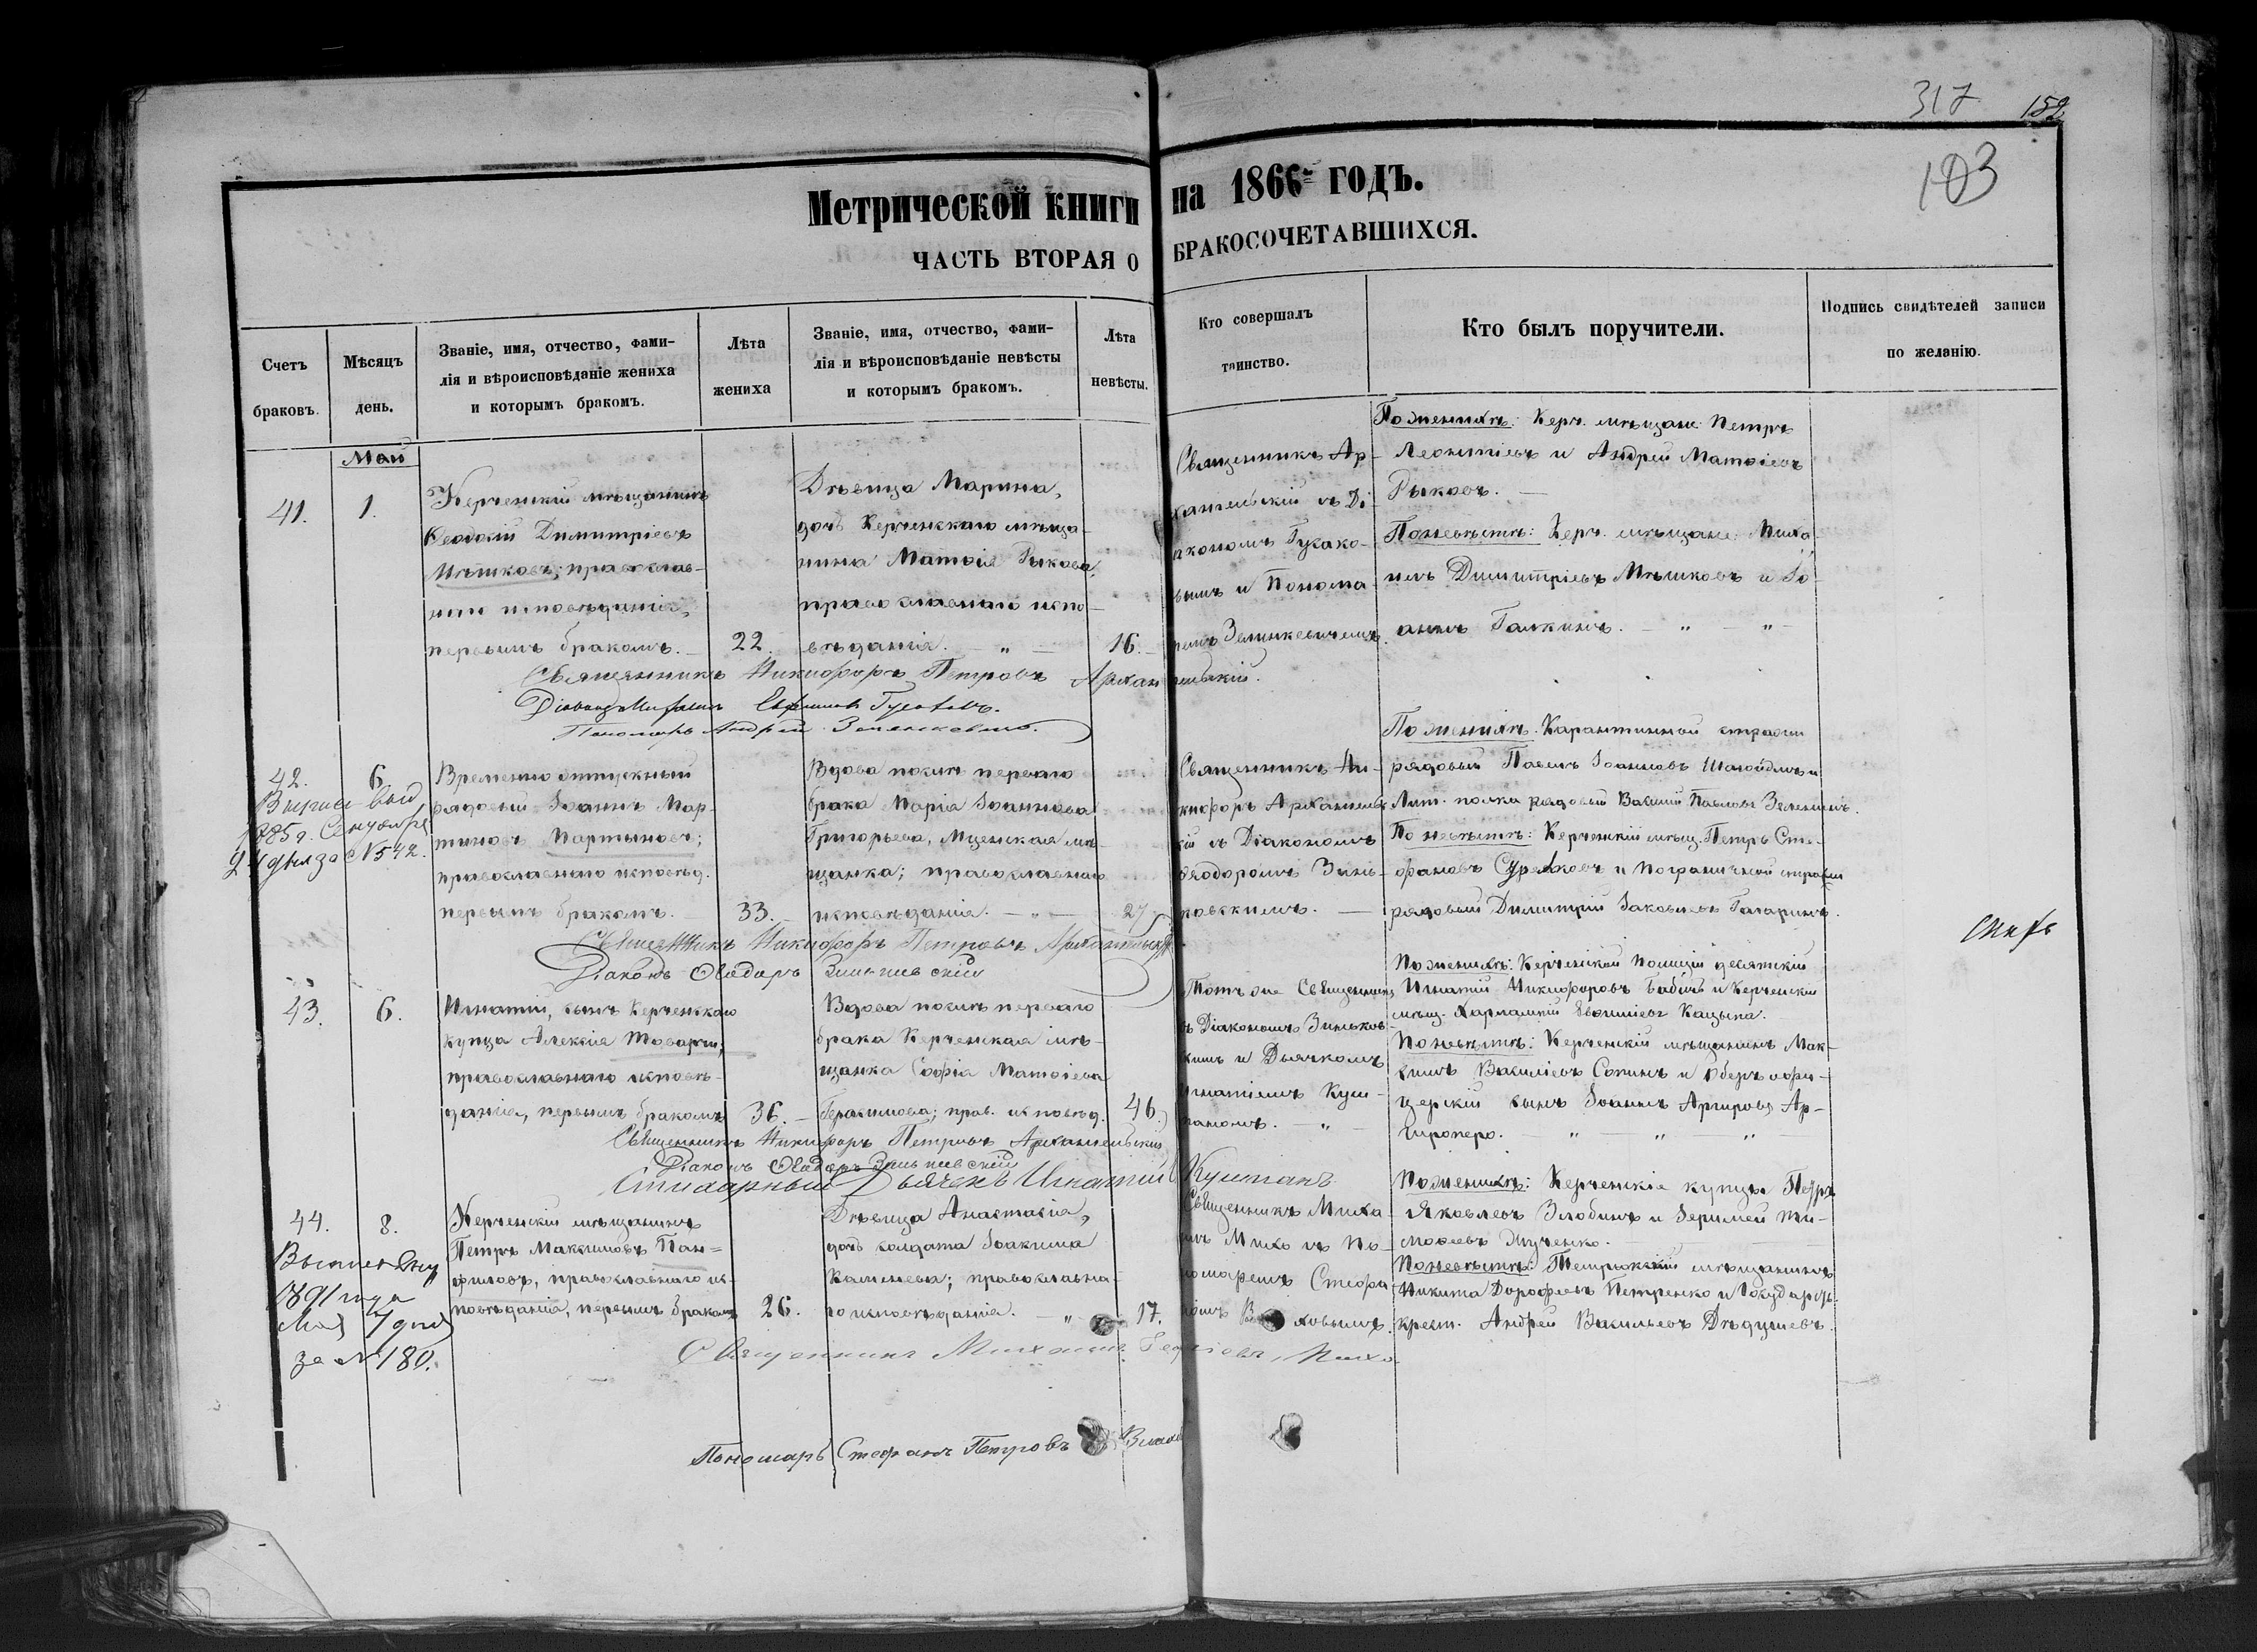 317 152
103
Метрической книги на 1866 годъ.
ЧАСТЬ ВТОРАЯ О БРАКОСОЧЕТАВШИХСЯ.
Счетъ
браковъ.
Мѣсяцъ
день.
Званіе, имя, отчество, фами-
лія и вѣроисповѣданіе жениха
и которымъ бракомъ.
Лѣта
жениха
Званіе, имя, отчество, фами-
лія и вѣроисповѣданіе невѣсты
и которымъ бракомъ.
Лѣта
невѣсты.
Кто совершалъ
таинство.
Кто былъ поручители.
Подпись свидѣтелей записи
по желанію.
Май
41.
1.
Керченскій мѣщанинъ
Ѳеодосій Димитріевъ
Мѣшковъ; православ-
наго исповѣданія,
первымъ бракомъ.
22.
Дѣвица Марина,
дочь Керченскаго мѣща-
нина Матѳія Рыкова,
православнаго испо-
вѣданія. — „ —
16.
Священникъ Ар-
хангельскій съ Ді-
акономъ Гусако-
вымъ и Понома-
ремъ Зелинкевичемъ.
По женихѣ: Керч. мѣщане: Петръ
Леонтіевъ и Андрей Матѳіевъ
Рыковъ. —
По невѣстѣ: Керч. мѣщане: Миха-
илъ Димитріевъ Мѣшковъ и Іо-
аннъ Галкинъ. — „ — „ —
Священникъ Никифоръ Петровъ Архангельскій.
Діаконъ Евфимій Гусаковъ.
Пономарь Андрей
42.
6
Временно отпускный
рядовый Іоаннъ Мар-
тиновъ Мартыновъ;
православнаго исповѣд.
первымъ бракомъ.
33.
Вдова послѣ перваго
брака Марія Іоаннова
Григорьева, Мценская мѣ-
щанка; православнаго
исповѣданія. — „ —
27
Священникъ Ни-
кифоръ Архангельс-
кій съ Діакономъ
Ѳеодоромъ Зинь-
ковскимъ. —
По женихѣ: Карантинной стражи
рядовый Павелъ Іоанновъ и
Лит. полка рядовый Василій Павловъ
По невѣстѣ: Керченскій мѣщ. Петръ Сте-
фановъ и пограничной стражи
рядовый Димитрій Іаковлевъ Гагаринъ.
1885 г. Сентября
24 дня за №542.
Священникъ Никифоръ Петровъ Архангельскій
Діаконъ Ѳеодоръ Зиньковскій
43.
6.
Игнатій, сынъ Керченскаго
купца Алексія Товарчи;
православнаго исповѣ-
данія, первымъ бракомъ
36. —
Вдова послѣ перваго
брака Керченская мѣ-
щанка Софія Матѳіева
Герасимова; прав. исповѣд.
46.
Тотъ же Священникъ
съ Діакономъ Зиньков-
скимъ и Дьячкомъ
Игнатіемъ Куш-
паномъ. — „ —
По женихѣ: Керченской Полиціи десятскій
Игнатій Никифоровъ Бабичъ и Керченскій
мѣщ. Харлампій Евѳиміевъ Кацыка.
По невѣстѣ: Керченскій мѣщанинъ Мак-
симъ Василіевъ Сопинъ и Оберъ-офи-
церскій сынъ Іоаннъ Аргировъ Ар-
гироперо. „ — „ — „
Священникъ Никифоръ Петровъ Архангельскій
Діаконъ Ѳеодоръ Зиньковскій
Стихарный Дьячекъ Игнатій Кушпанъ
44.
8.
Керченскій мѣщанинъ
Петръ Максимовъ Пан=
филовъ, православнаго ис-
повѣданія, первымъ бракомъ
26.
Дѣвица Анастасія,
дочь солдата Іоакима
Каменева; православна-
го исповѣданія. — „ —
17.
Священникъ Миха-
илъ Михо съ По-
номаремъ Стефа-
номъ
По женихѣ: Керченскіе купцы Петръ
Яковлевъ Злобинъ и Іеремей Ти-
моѳеевъ Луценко.
По невѣстѣ: Темрюкскій мѣщанинъ
Никита Дороѳеевъ Петренко и Государст.
крест. Андрей Васильевъ Дѣдушевъ.
1891 года
Мая 7 дня
за №180.
Священникъ Михаилъ Георгіевъ Михо.
Пономарь Стефанъ Петровъ